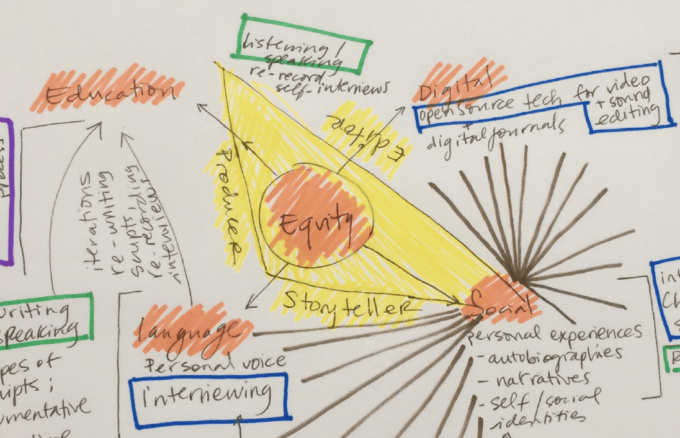 listening/
speaking
re-record
self-interviews
Education
Digital
open source tech for video
+ sound
editing
+
digital journals
Editor
Producer
Equity
Storyteller
process
iterations
re-writing
scripts,
re-recording
interviews
writing
speaking
language
personal voice
interviewing
Social
personal experiences
- autobiographies
- narratives
- self/social
identities